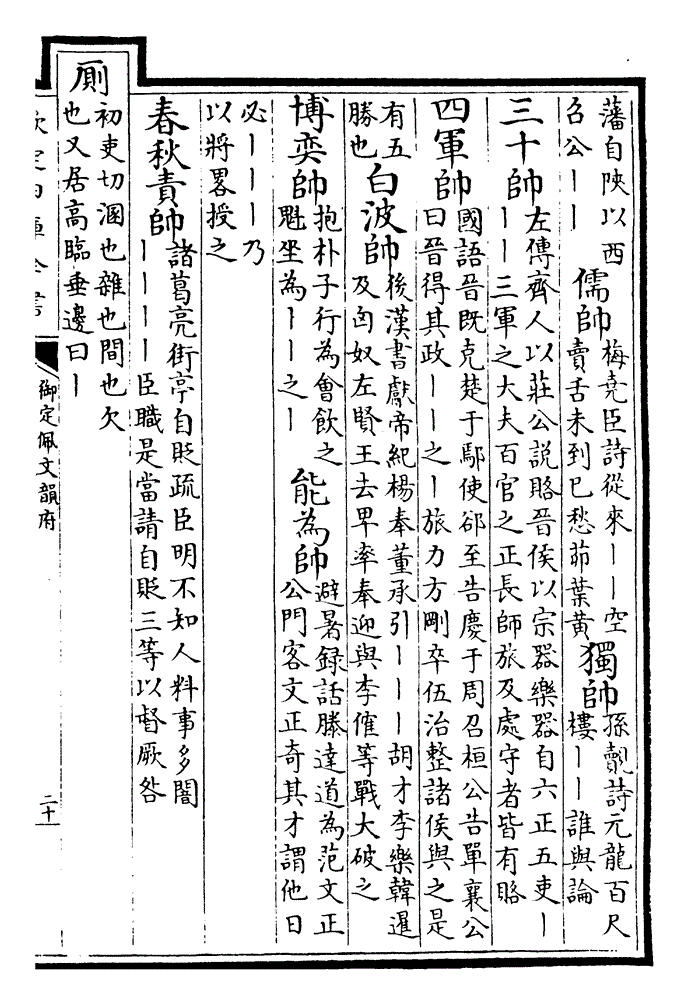 藩自陝以西
召公丨丨
儒帥
梅堯臣詩從來丨丨空
賣舌未到已愁茆葉黄
獨帥
孫覿詩元龍百尺
樓丨丨誰與論
三十帥
左傳齊人以莊公說賂晉侯以宗器樂器自六正五吏丨
丨丨三軍之大夫百官之正長師旅及處守者皆有賂
四軍帥
國語晉既克楚于鄢使郤至告慶于周召桓公告單襄公
曰晉得其政丨丨之丨旅力方剛卒伍治整諸侯與之是
有五
勝也
白波帥
後漢書獻帝紀楊奉董承引丨丨丨胡才李樂韓暹
及匈奴左賢王去卑率奉迎與李傕等戰大破之
博奕帥
抱朴子行為會飲之
魁坐為丨丨之丨
能為帥
避暑録話滕達道為范文正
公門客文正奇其才謂他日
必丨丨丨乃
以將畧授之
春秋責帥
諸葛亮街亭自貶疏臣明不知人料事多闇
丨丨丨丨臣職是當請自貶三等以督厥咎
厠
初吏切溷也雜也間也欠
也又居高臨垂邊曰丨
欽定四庫全書
御定佩文韻府
二十